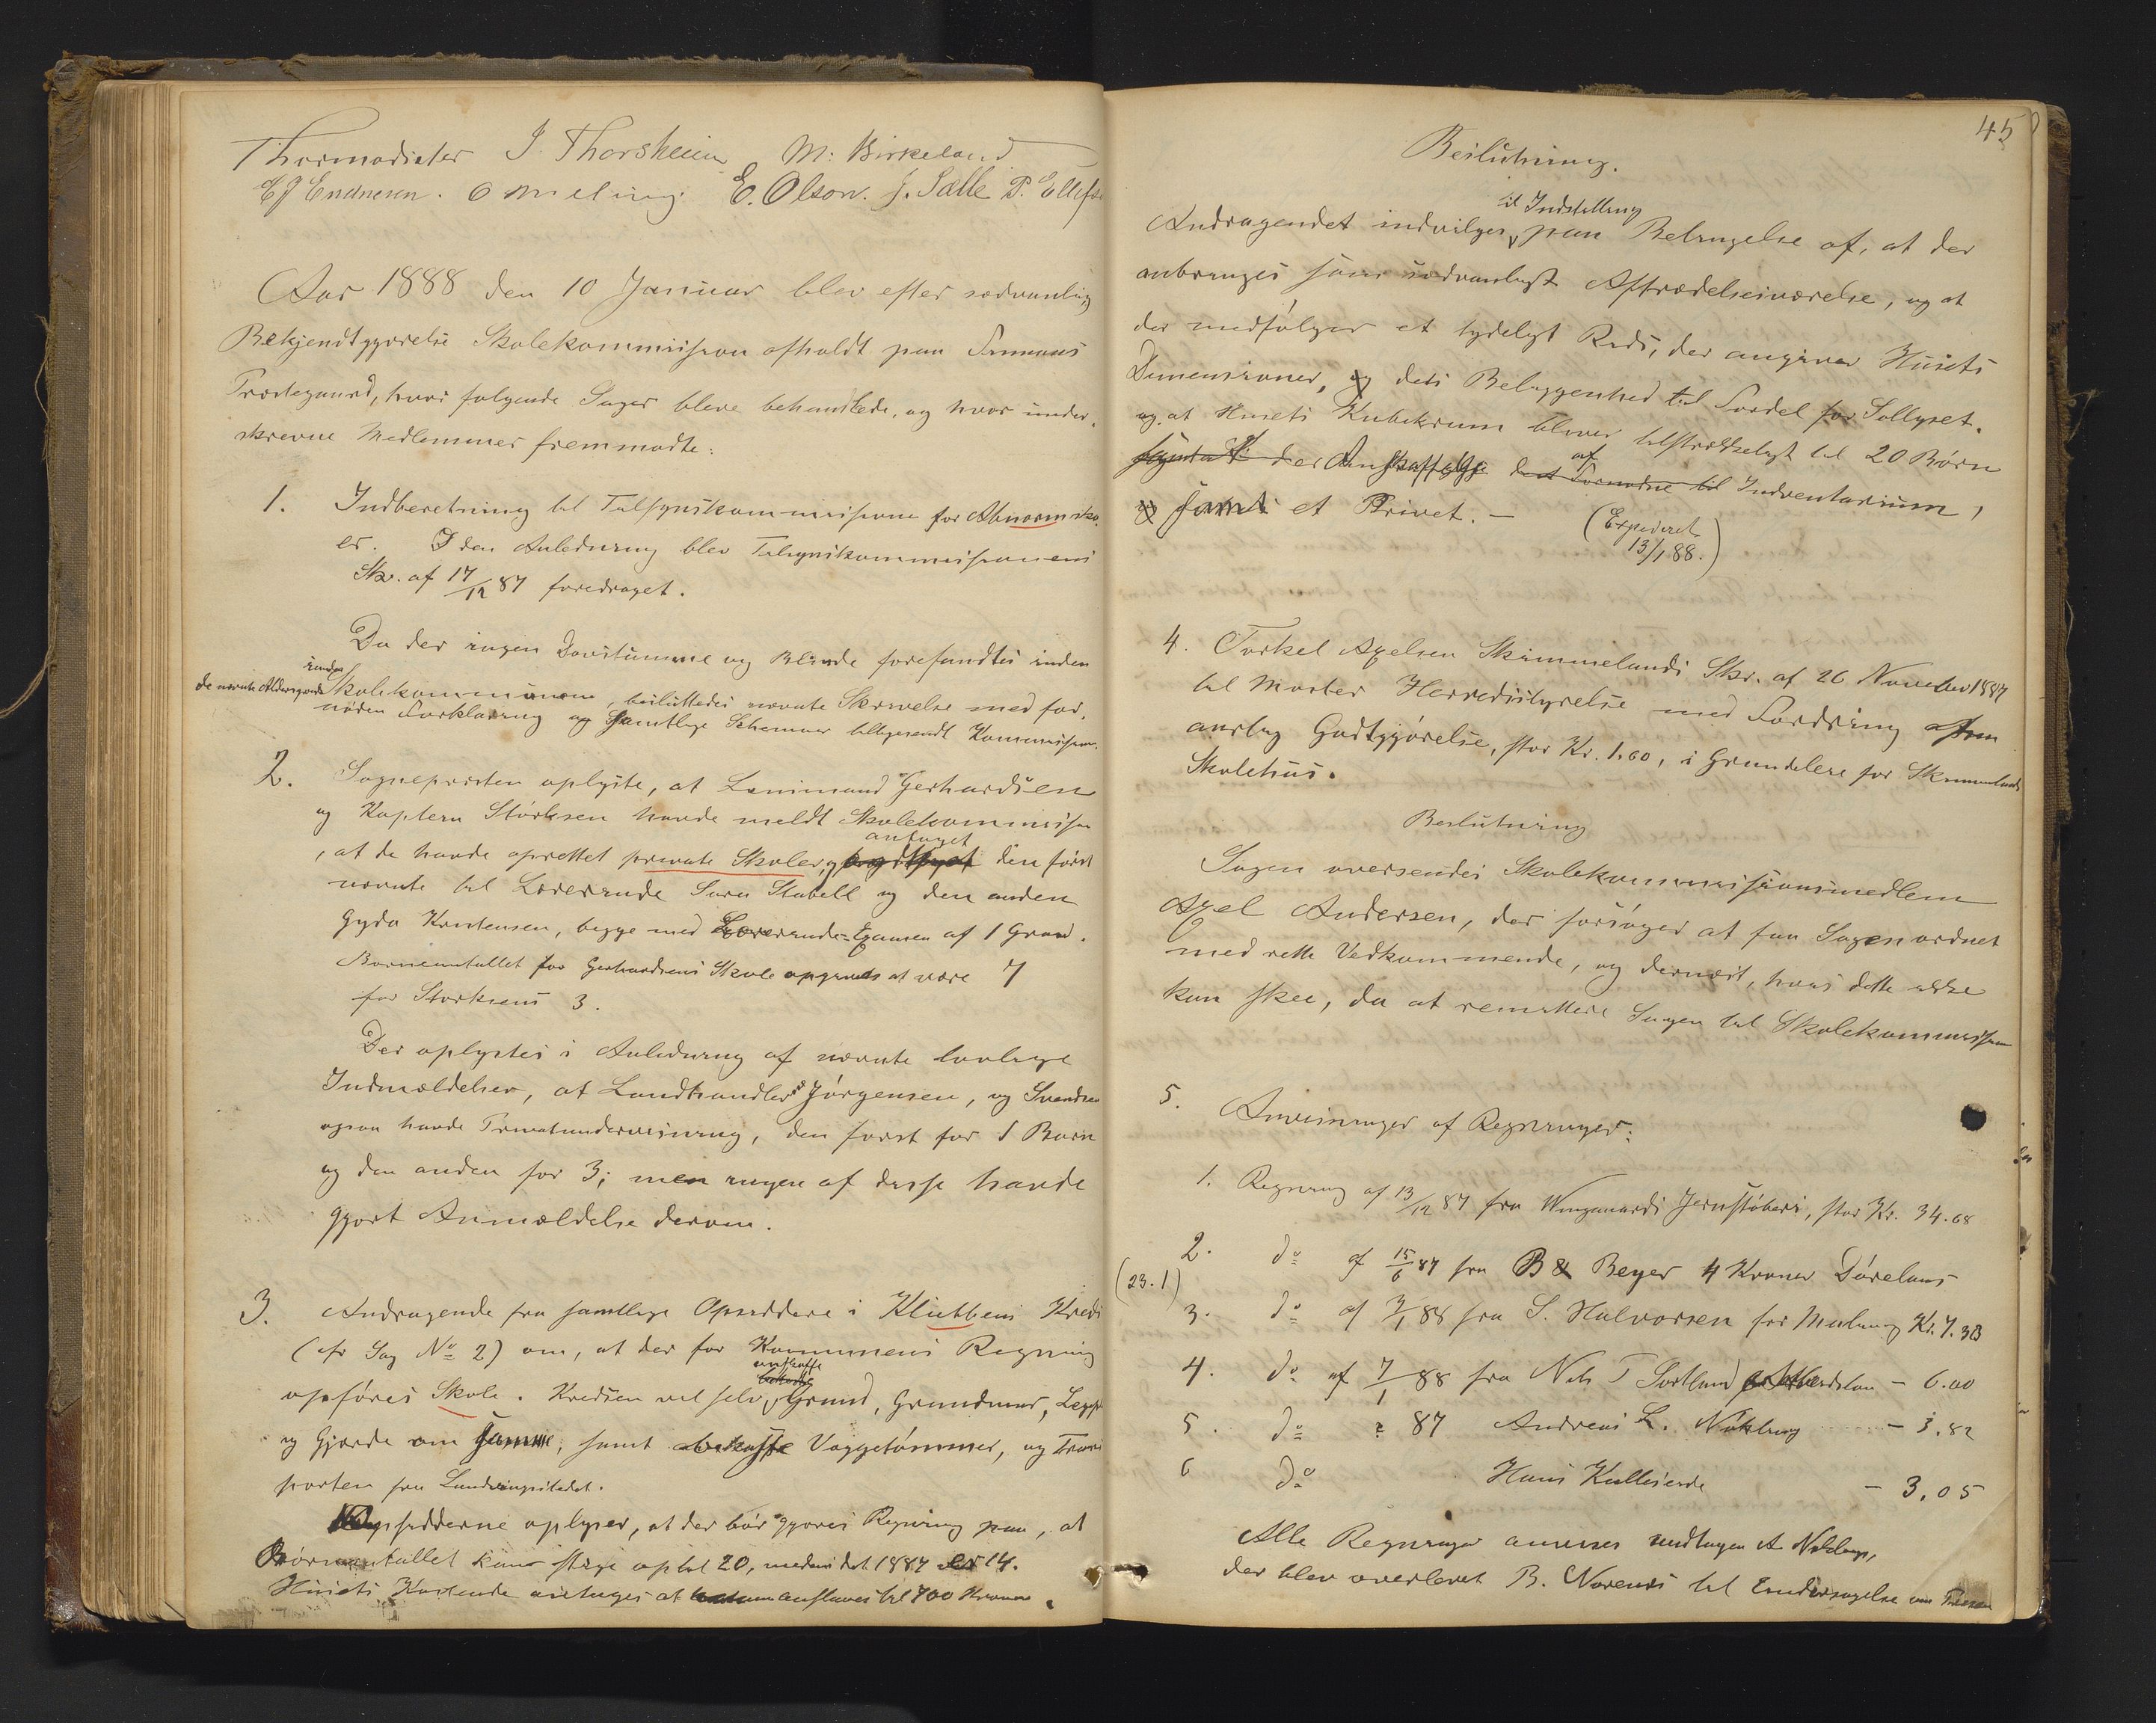 Thormodsæter J. Thorsheim M. Birkeland
E J Endresen. O Meling. E. Olson. J. Sælle P. Ellefse
Aar 1888 den 10 Januar blev efter sædvanlig
Bekjendtgjørelse Skolekommission afholdt paa Finnaas
Præstegaard, hvor følgende Sager bleve behandlede, og hvor under-
skrevne Medlemmer fremmødte:
1. Indberetning til Tilsynskommissionen for Abnormsko-
er. I den Anledning blev Tilsynskommissionens
Skr. af 17/12 87 foredraget.
Da der ingen Døvstumme og Blinde forefandtes inden
inden
de nævnte Aldersgrænde Skolekommunen, besluttedes nævnte Skrivelse med for-
nøden Forklaring og samtlige Schemaer tilbagesendt Kommission.
2. Sognepresten oplyste, at Lensmand Gerhardsen
og Kaptein Størksen havde meldt Skolekommission
antaget
, at de havde oprettet private Skoler, og den først
nævnte til Lærerinde Sara Stabell og den anden
Gyda Kristensen, begge med Lærerinde-Examen af 1 Grad.
Børneantallet for Gerhardsens Skole opgaves at være 7
for Størksens 3.
Der oplystes i Anledning af nævnte lovlige
Indmældelser, at Landhandler Jørgensen, og Svendsen
ogsaa havde Privatundervisning, den først for 1 Barn
og den anden for 3; men ingen af disse havde
gjort Anmældelse derom.
3. Andragende fra samtlige Opsiddere i Kliethens Kreds
(cfr Sag No 2) om, at der for Kommunens Regning
anskaffe
opføres Skole. Kredsen vil selv Grund, Grundmur,
og Gjærde om samme, samt anskaffe Væggetømmer, og Trans
porten fra Landingsstedet.
Opsidderne oplyser, at der bør gjøres Regning paa, at
Børneantallet kan stige op til 20, medens det 1887 er 14.
Husets Kostende antages at anslaaes til 700 Kroner.
45
Beslutning.
til Indstilling
Andragendet indvilges, paa Betingelse af, at der
anbringes som sædvanligt Aftrædelsesværelse, og at
der medfølger et tydeligt Rids, der angiver Husets
Dimensioner, og dets Beliggenhed til Fordel for Sollyset.
og at Husets Kubikrum bliver tilstrækkeligt til 20 Børn
af
der Anskaffelse det Fornødne til Inventarium,
samt et Privet. —
(Expederet
13/1 88.)
4. Torkel Axelsen Skimmelands Skr. af 26 November 1887
til Moster Herredsstyrelse med Fordring om
aarlig Godtgjørelse, stor Kr. 1.60, i Grundleie for Skimmelands
Skolehus.
Beslutning
Sagen oversendes Skolekommissionsmedlem
Axel Andersen, der forsøger at faa Sagen ordnet
med rette Vedkommende, og dernæst, hvis dette ikke
kan skee, da at remittere Sagen til Skolekommission
5. Anvisninger af Regninger:
1. Regning af 13/12 87 fra Wingaards Jernstøberi, stor Kr. 34.68
2. do af 15/6 87 fra B & Beyer 4 Kroner
(23.1)
3. do af 3/1 88 fra S. Halvorsen for Maling Kr. 7.38
4. do af 7/1 88 fra Nils T Sortland - 6.00
5. do ? 87 Andreas L. Nøkling - 3.82
6 do Hans Kulleseide - 3.05
Alle Regninger anvises undtagen A Nøklings,
der blev overleveret B. Vorenæs til Undersøgelse om Prisen